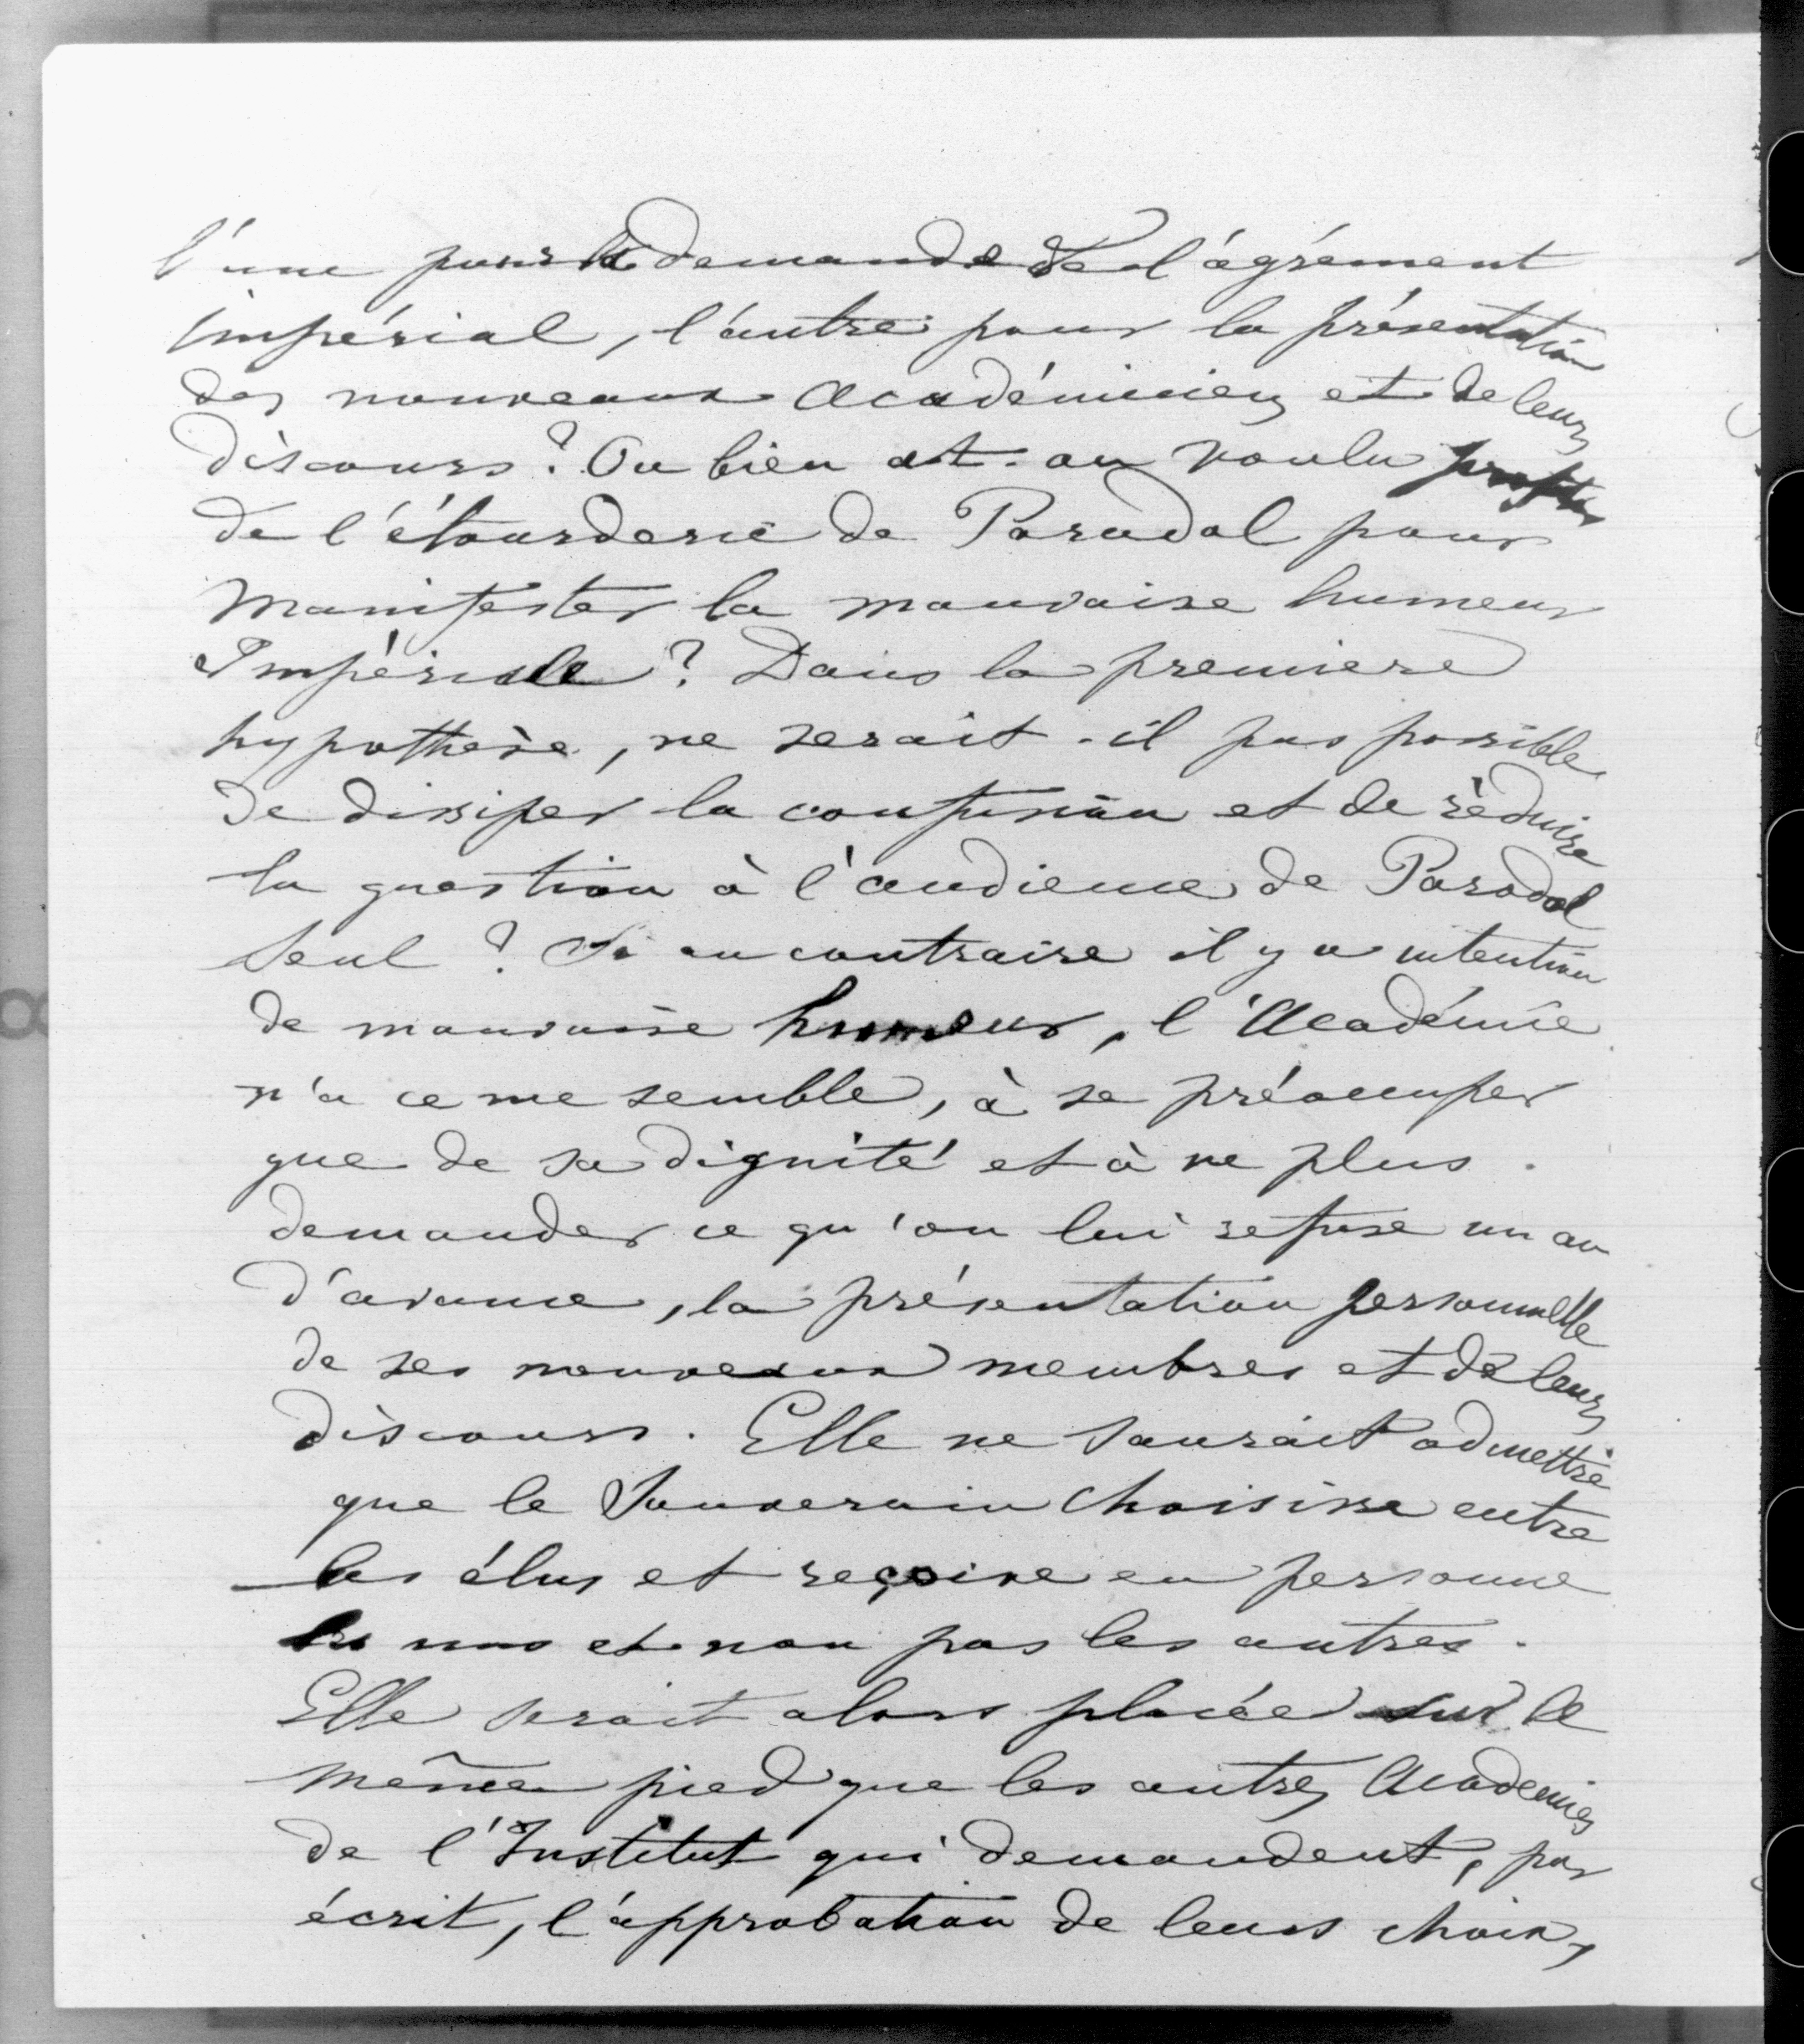 l'une pour la demande de l'agrément
impérial, l'autre pour la présentation
des nouveaux Académiciens et de leurs
discours? Ou bien a-t-on voulu profiter
de l'étourderie de Paradol pour
manifester la mauvaise humeur
Impériale? Dans la premiere
hypothèse, ne serait-il pas possible
de dissiper la confusion et de réduire
la question à l'audience de Paradol
seul? Si au contraire il y a intention
de mauvaise humeur, l'Académie
n'a ce me semble, à se préoccuper
que de sa dignité et à ne plus
demander ce qu'on lui refuse un an
d'avance, la présentation personnelle
de ses nouveaux membres et de leurs
discours. Elle ne saurait admettre
que le Souverain choisisse entre
les élus et reçoive en personne
les uns et non pas les autres.
Elle serait alors placée sur le
même pied que les autres Academies
de l'Institut qui demandent, par
écrit, l'approbation de leurs choix,